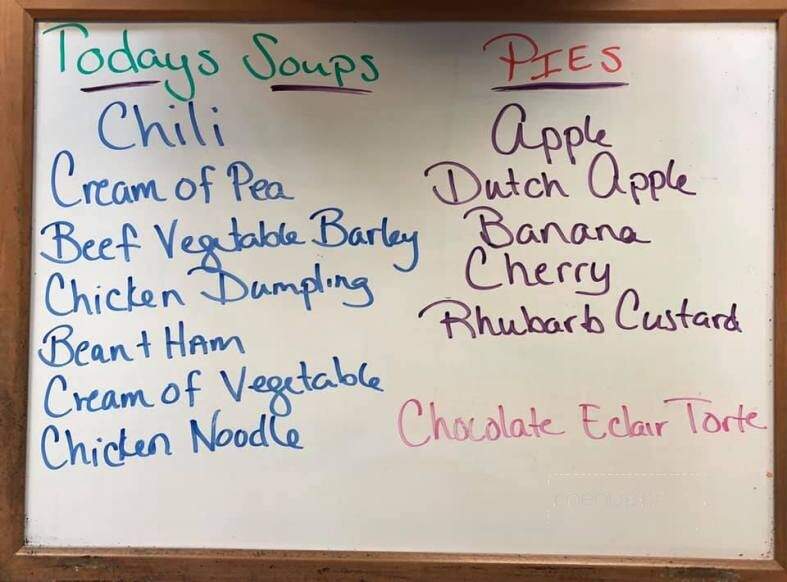 Todays Soups
Chili
Cream of Pea
Beef Vegetable Barley
Chicken Dumpling
Bean + HAM
Cream of Vegetable
Chicken Noodle
PIES
Apple
Dutch Apple
Banana
Cherry
Rhubarb Custard
Chocolate Eclair Torte